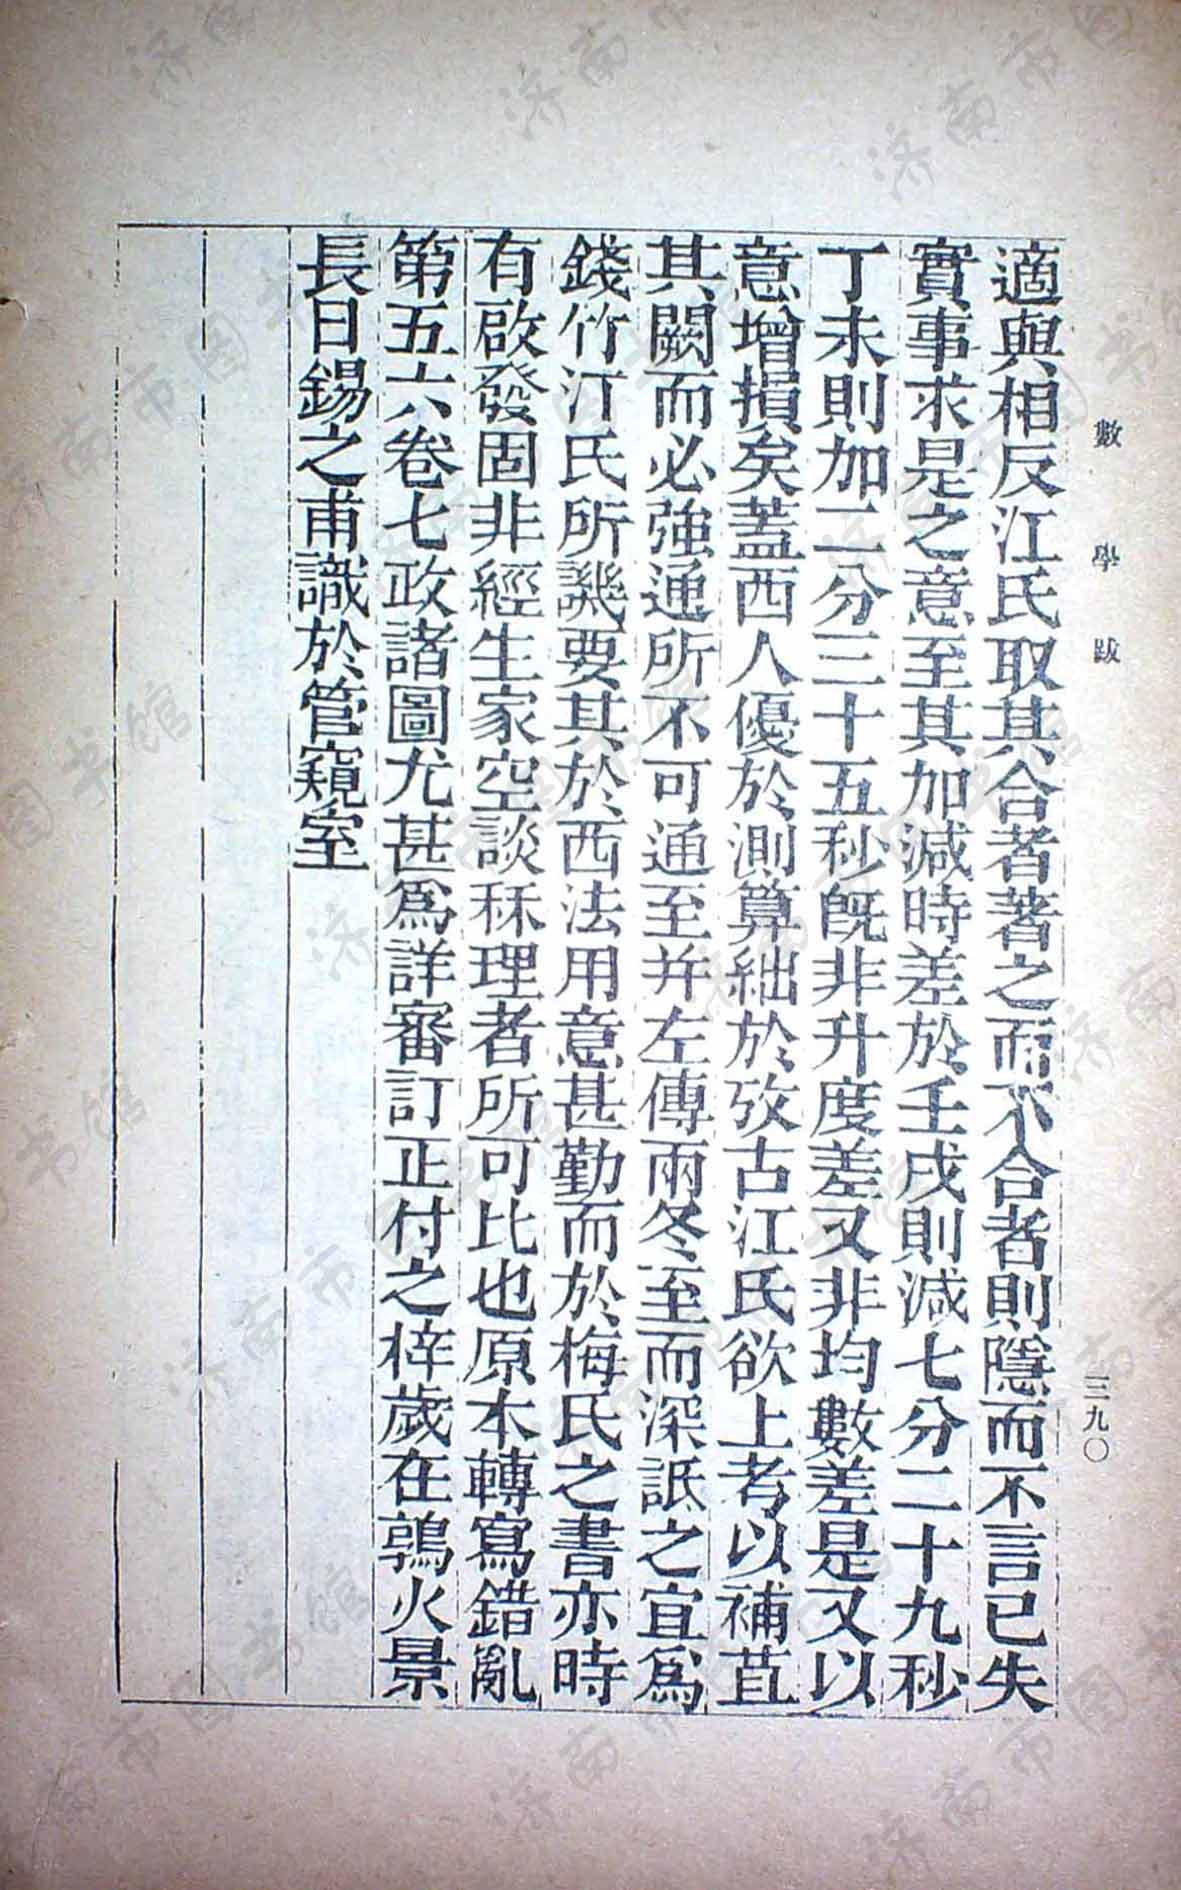 數學跋
三九〇
適與相反江氏取其合者著之而不合者則隱而不言已失
實事求是之意至其加減時差於壬戌則減七分二十九秒
丁未則加二分三十五秒旣非升度差又非均數差是又以
意增損矣蓋西人優於測算絀於攷古江氏欲上考以補苴
其闕而必強通所不可通至并左傳兩冬至而深詆之宜爲
錢竹汀氏所譏要其於西法用意甚勤而於梅氏之書亦時
有啟發固非經生家空談秝理者所可比也原本轉寫錯亂
第五六卷七政諸圖尤甚爲詳審訂正付之梓歲在鶉火景
長日錫之甫識於管窺室
济南市图书馆